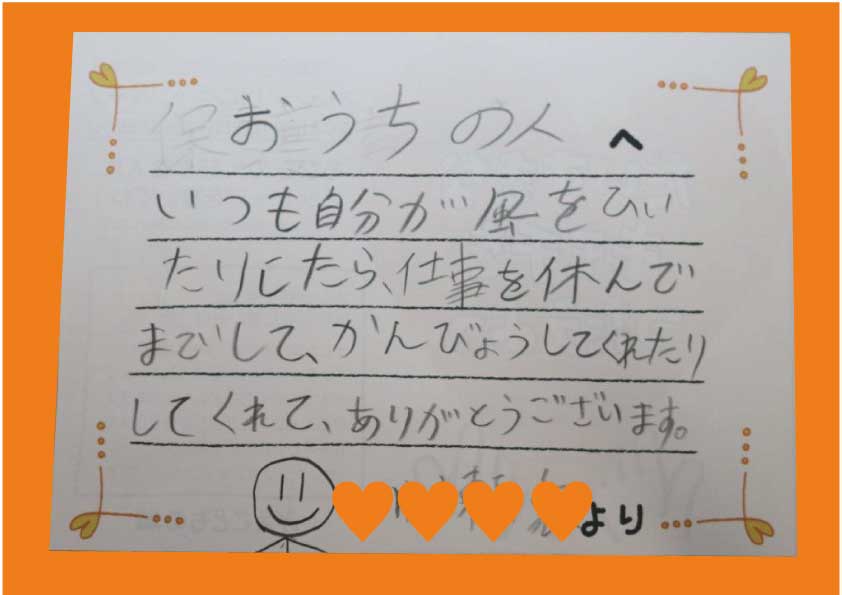 おうちの人 へ
いつも自分が風をひい
たりしたら、仕事を休んで
までして、かんびょうしてくれたり
してくれて、ありがとうございます。
より